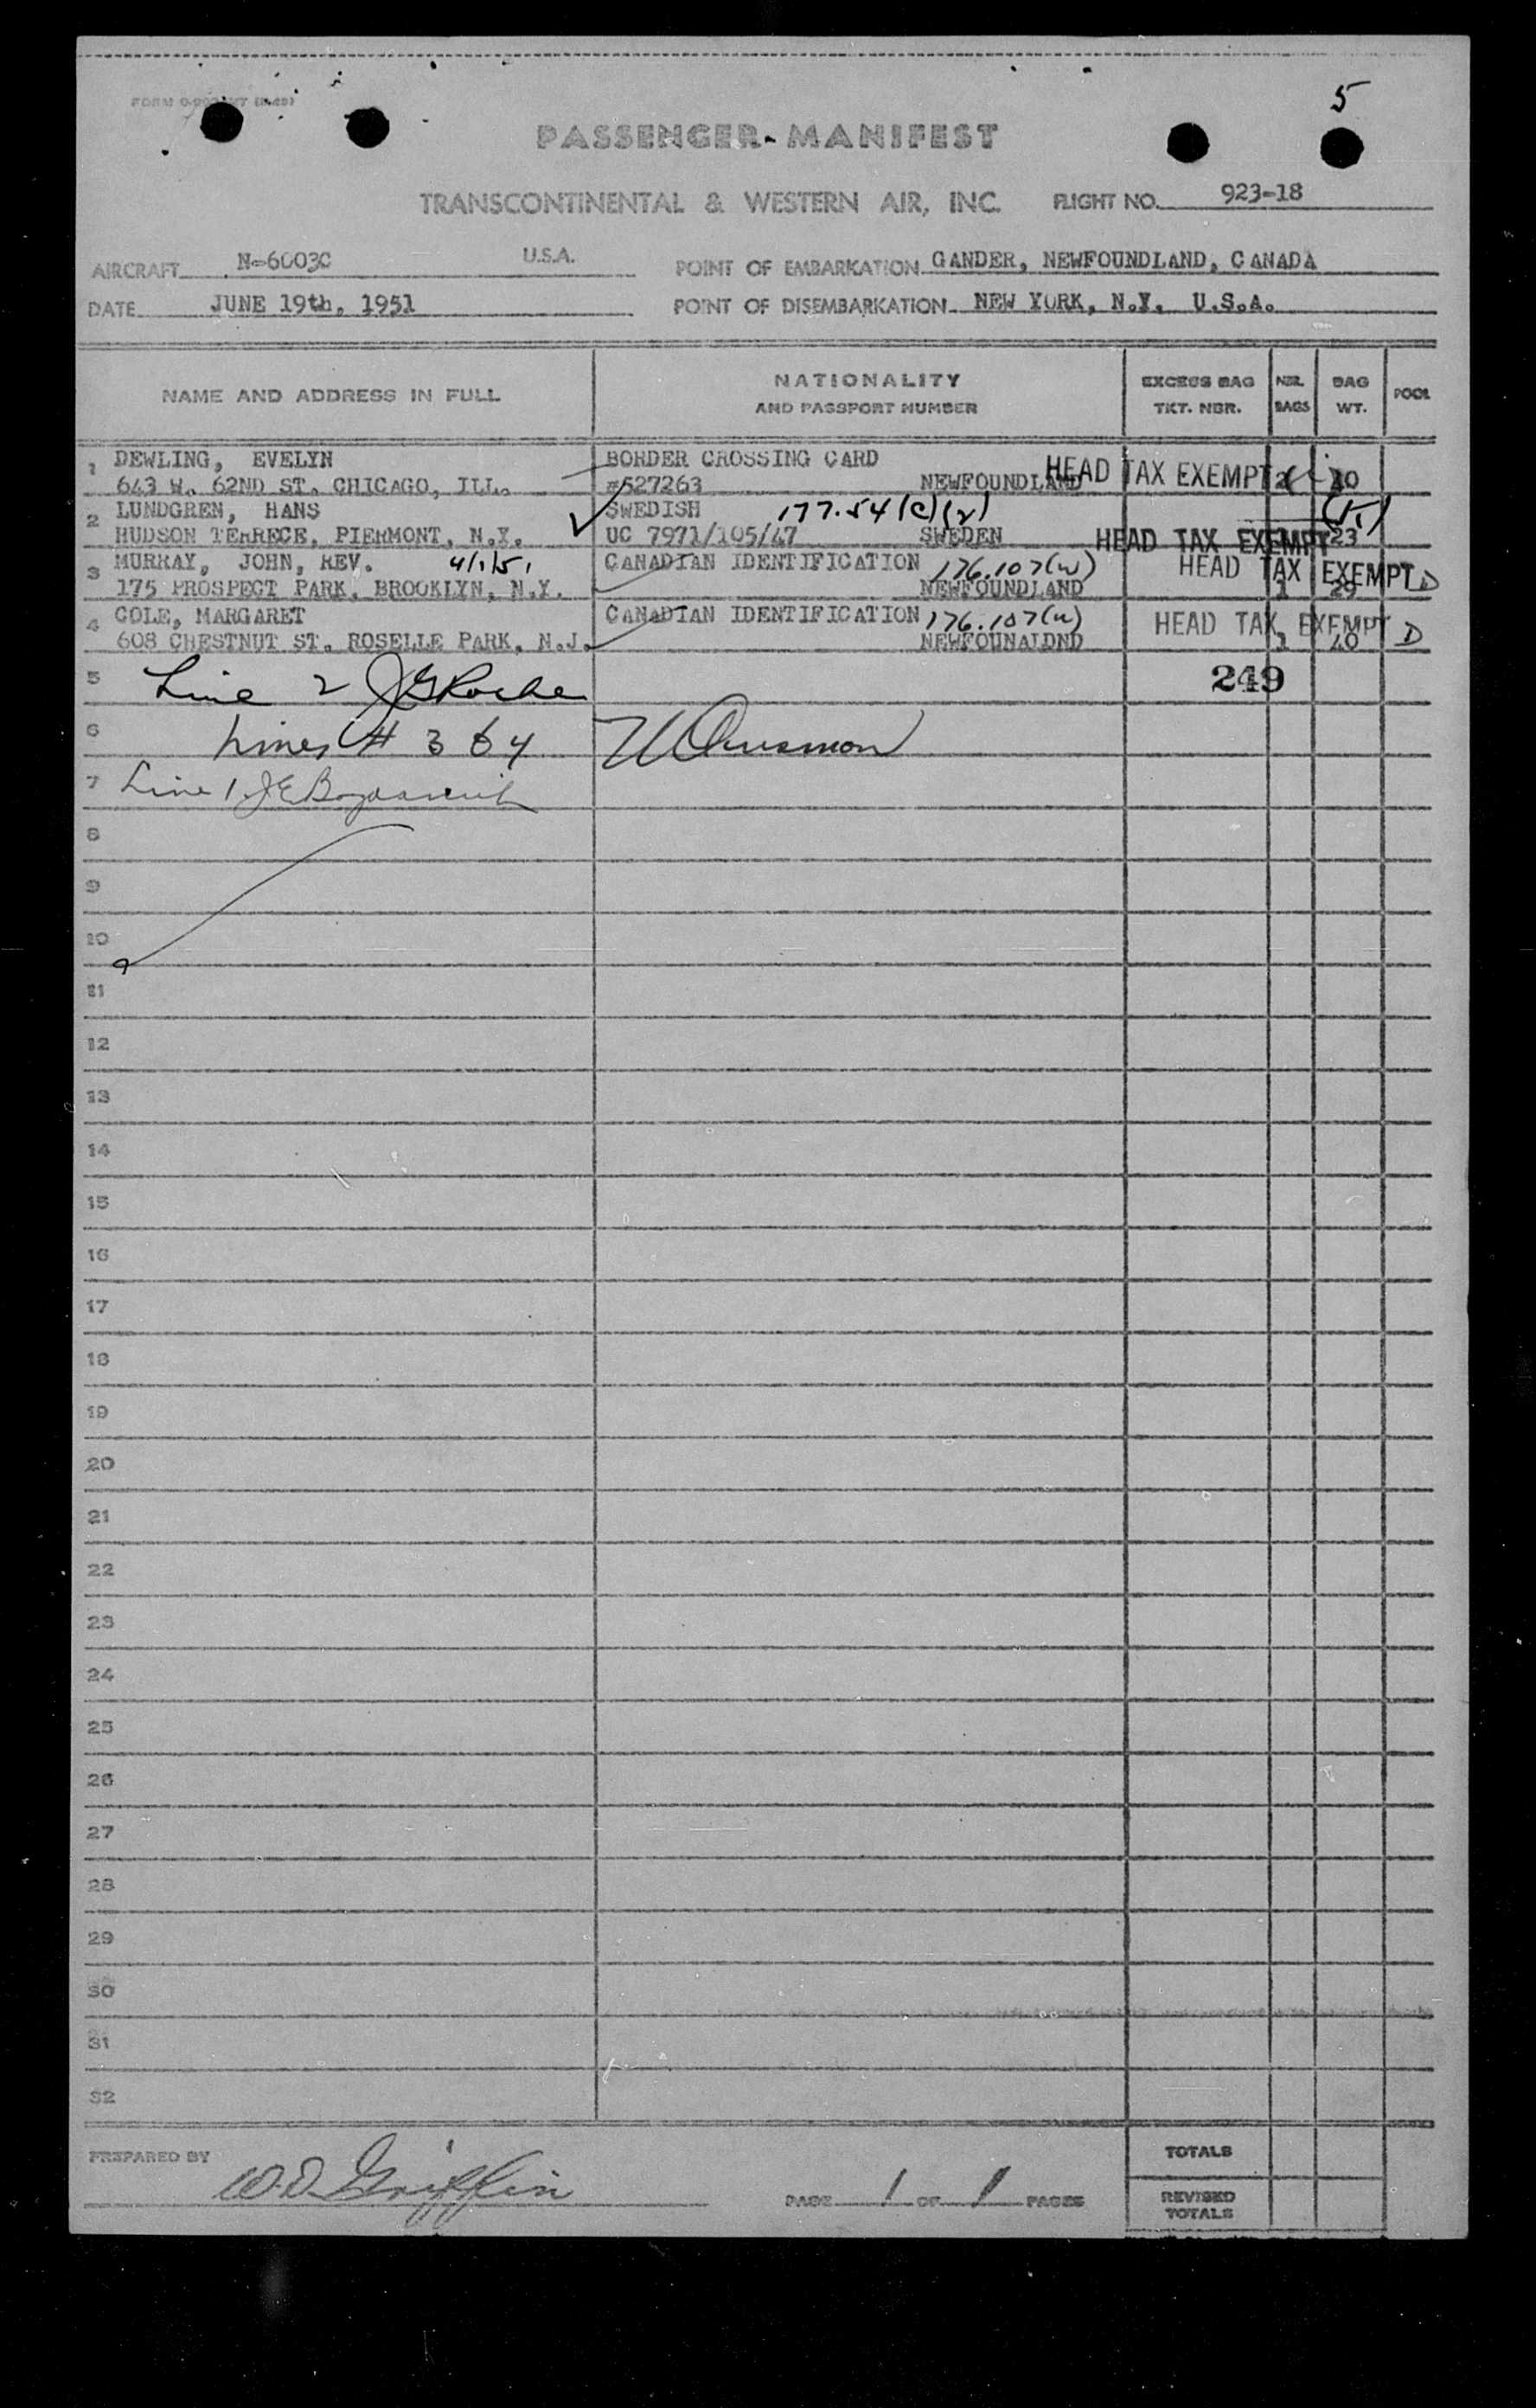 5
PASSENGER-MANIFEST
TRANSCONTINENTAL & WESTERN AIR, INC. FLIGHT NO. 923-18
AIRCRAFT N-6003C U.S.A. POINT OF EMBARKATION GANDER, NEWFOUNDLAND, CANADA
DATE JUNE 19th, 1951 POINT OF DISEMBARKATION NEW YORK, N.Y. U.S.A.
NAME AND ADDRESS IN FULL NATIONALITY AND PASSPORT NUMBER EXCESS BAG TKT. NBR. NBR. BAGS BAG WT. POOL
1 DEWLING, EVELYN BORDER CROSSING CARD
643 W. 62ND ST. CHICAGO, ILL. #527263 NEWFOUNDLAND HEAD TAX EXEMPT 2
2 LUNDGREN, HANS SWEDISH 177.54(c)(2)
HUDSON TERRECE, PIERMONT, N.Y. UC 7971/105/47 SWEDEN HEAD TAX EXEMPT 23
3 MURRAY, JOHN, REV. 4/1/51 CANADIAN IDENTIFICATION 176.107(w) HEAD TAX EXEMPT D
175 PROSPECT PARK, BROOKLYN, N.Y. NEWFOUNDLAND 1 29
4 COLE, MARGARET CANADIAN IDENTIFICATION 176.107(w) HEAD TAX EXEMPT D
608 CHESTNUT ST. ROSELLE PARK, N.J. NEWFOUNALDND 1 40
5 Line 2 JGRoche 249
6 Lines # 3 & 4
7 Line 1.
8
9
10
11
12
13
14
15
16
17
18
19
20
21
22
23
24
25
26
27
28
29
30
31
32
PREPARED BY W.D. Griffin PAGE 1 OF 1 PAGES
TOTALS
REVISED TOTALS